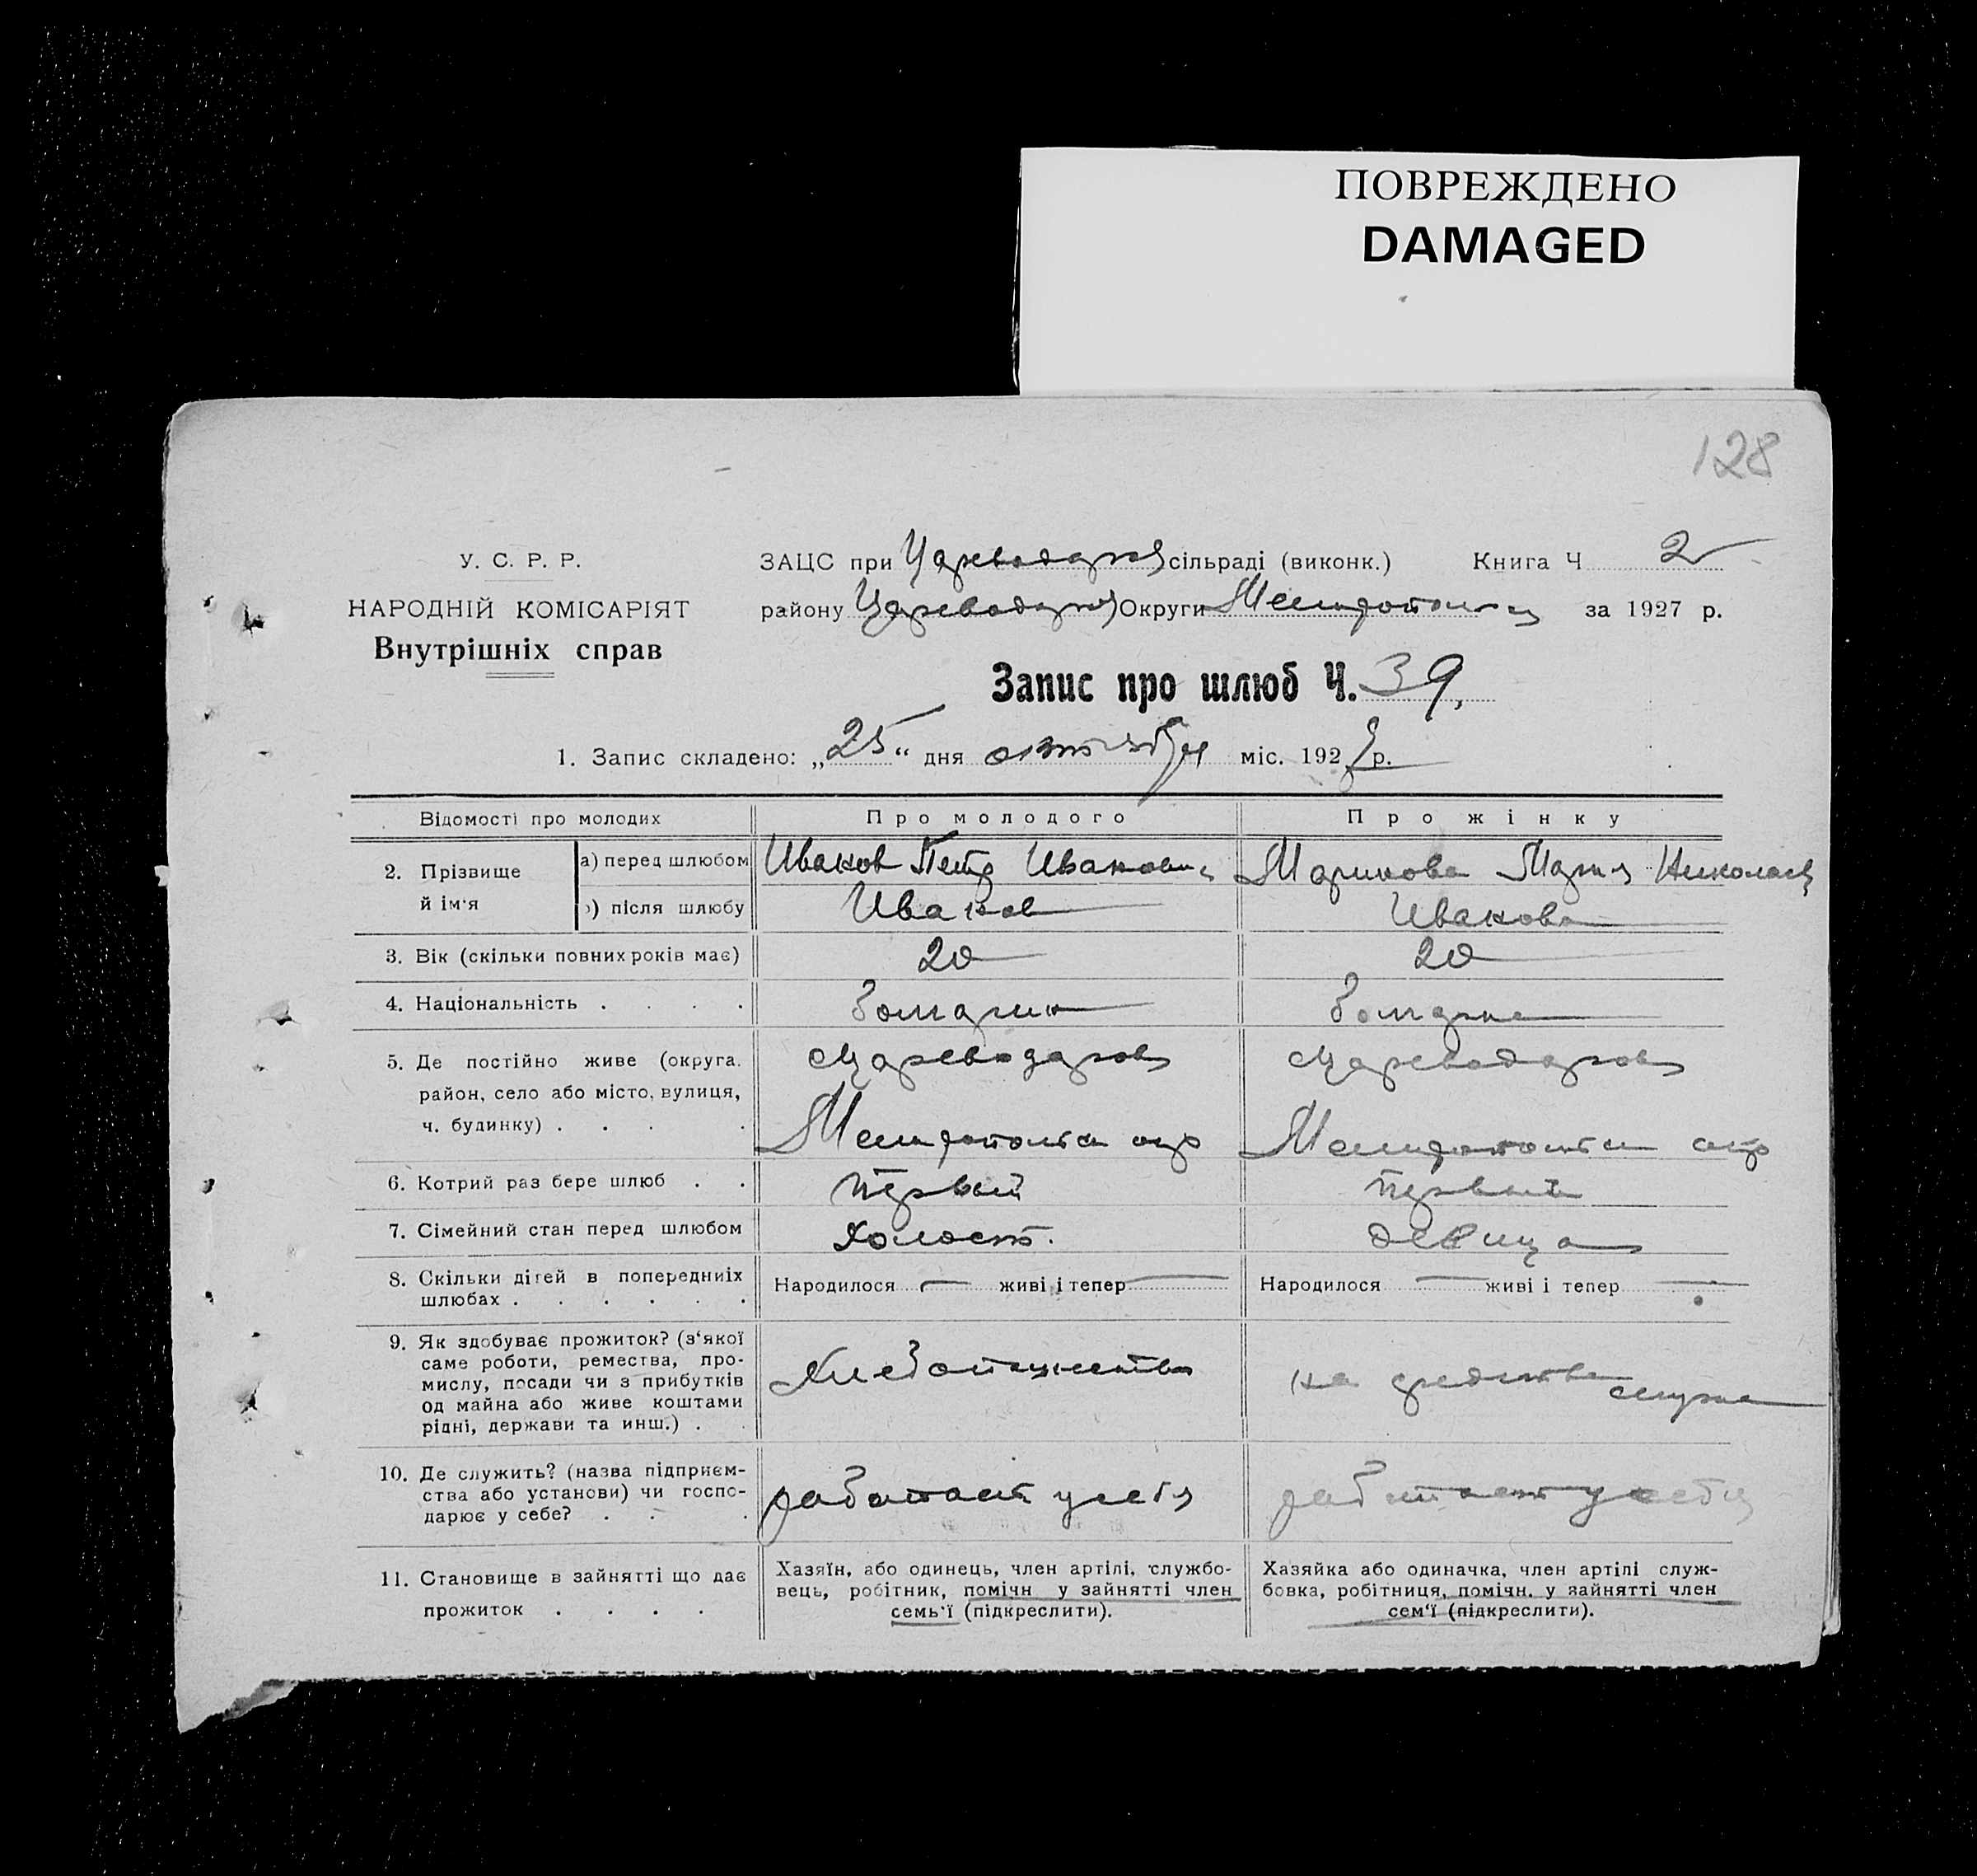 ПОВРЕЖДЕНО
DAMAGED
128
У. С. Р. Р.
НАРОДНІЙ КОМІСАРІЯТ
Внутрішніх справ
ЗАЦС при Цареводар сільраді (виконк.) Книга Ч 2
району Цареводар Округи Мелитопольск за 1927 р.
Запис про шлюб Ч. 39,
1. Запис складено: „25“ дня октября міс. 1927 р.
Відомості про молодих Про молодого Про жінку
2. Прізвище й ім‘я а) перед шлюбом Иванов Петр Иванович Маринова Мария Николаев
) після шлюбу Иванов Иванова
3. Вік (скільки повних років має) 20 20
4. Національність . . . . болгарин болгарка
5. Де постійно живе (округа. с Цареводаровка с Цареводаровка
район, село або місто, вулиця,
ч. будинку) . . . . Мелитопольск окр Мелитопольск окр
6. Котрий раз бере шлюб . . Первый Первый
7. Сімейний стан перед шлюбом Холост. девица
8. Скільки дітей в попередниіх Народилося — живі і тепер — Народилося — живі і тепер —
шлюбах . . . . . .
9. Як здобуває прожиток? (з‘якої
саме роботи, ремества, про-
мислу, посади чи з прибутків Хлебопашество на средства мужа
од майна або живе коштами
рідні, держави та инш.) .
10. Де служить? (назва підприєм-
ства або установи) чи госпо- работает у себя работает у себя
дарює у себе? . . .
11. Становище в зайнятті що дає Хазяїн, або одинець, член артілі, службо- Хазяйка або одиначка, член артілі служ-
вець, робітник, помічн у зайнятті член бовка, робітниця, помічн. у зайнятті член
прожиток . . . . семь‘ї (підкреслити). сем‘ї (підкреслити).